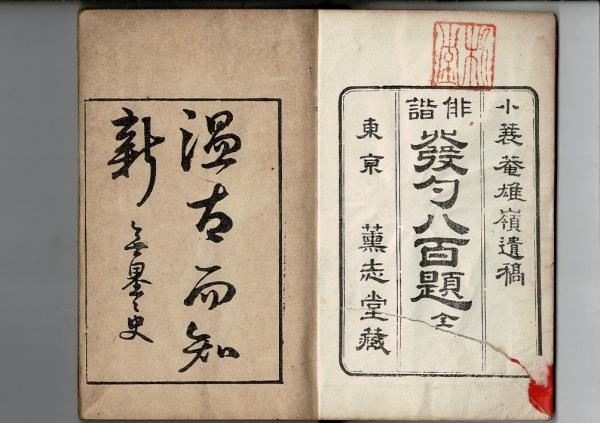 小蓑菴雄嶺遺稿
俳諧
發句八百題 全
東京 薫志堂藏
温古而知
新